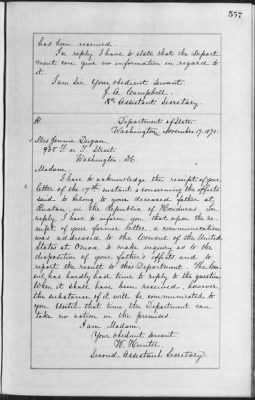 557
has been received.
In reply I have to state that the Depart-
ment can give no information in regard to
it.
I am Sir Your obedient Servant
J. A. Campbell.
3rd Assistant Secretary.
Department of State.
Washington November 19, 1875
Mrs Jennie
Street
Washington. DC.
Madam,
I have to acknowledge the receipt of your
letter of the 17th instant concerning the effects
said to belong to your deceased father at
Ruatan, in the Republic of Honduras. In
reply I have to inform you that upon the re-
ceipt of your former letter a communication
was addressed to the Consul of the United
States at Omoa to make inquiry as to the
disposition of your father's effects and to
report the result to this Department. The Con-
sul has hardly had time to reply to the question
When it shall have been received, however
the substance of it will be communicated to
you Until that time the Department can
take no action in the premises.
I am Madam,
Your obedient servant
W. Hunter.
Second Assistant Secretary.